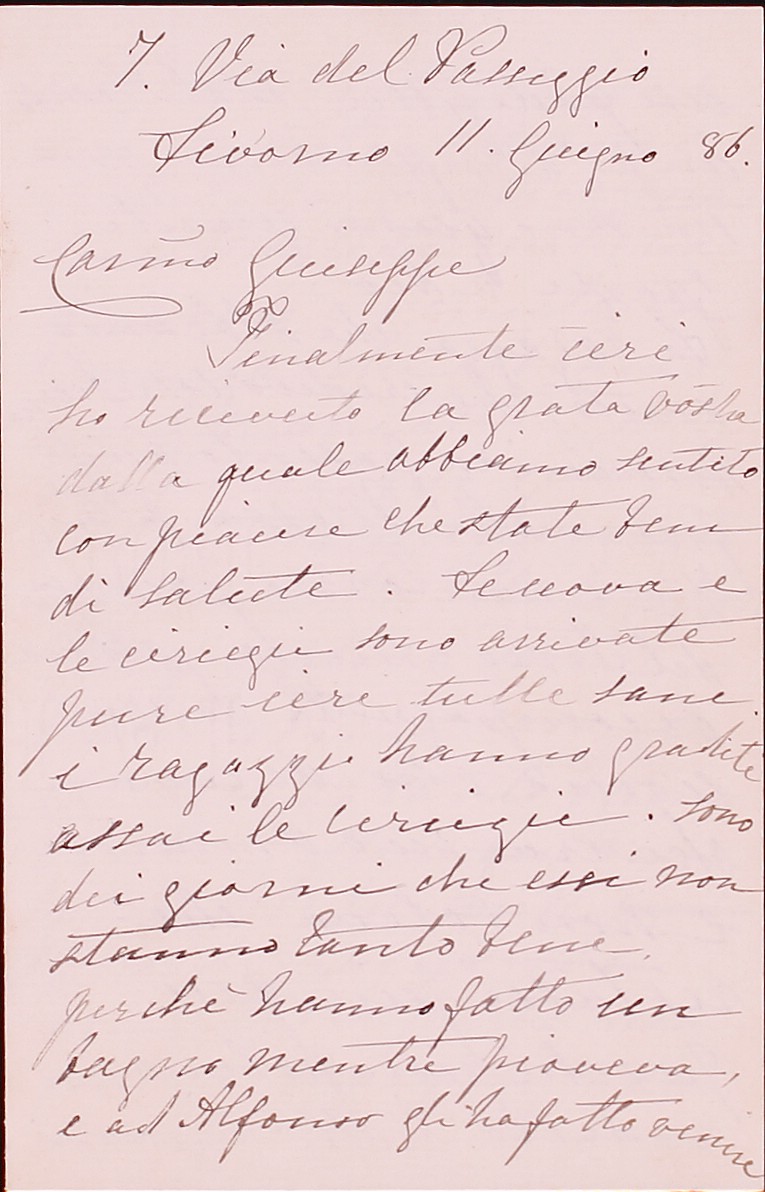 7. Via del Passeggio
Livorno 11. Giugno 86.
Carm̃o Giuseppe
Finalmente ieri
ho ricevuto la grata vostra
dalla quale abbiamo sentito
con piacere che state bene
di salute. Le uova e
le ciriegie sono arrivate
pure ieri tutte sane
i ragazzi hanno gradite
assai le ciriegie. sono
dei giorni che essi non
stanno tanto bene,
perchè hanno fatto un
bagno mentre pioveva,
e ad Alfonso gli ha fatto venire